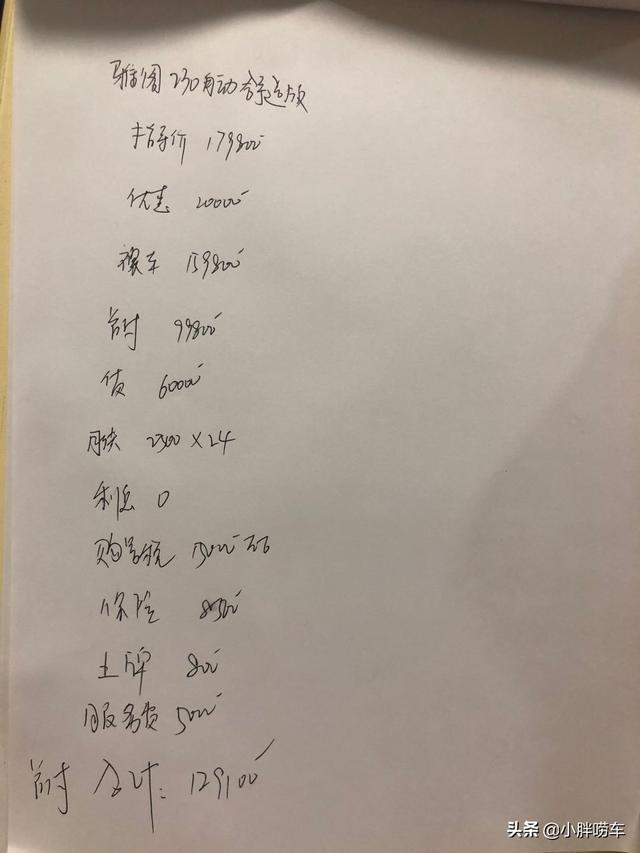 雅阁 230自动舒适版
指导价 179800
优惠 20000
裸车 159800
首付 99800
贷 60000
月供 2500×24
利息 0
购置税 15000左右
保险 8500
上牌 800
服务费 5000
首付 合计: 129100
头条 @小胖唠车